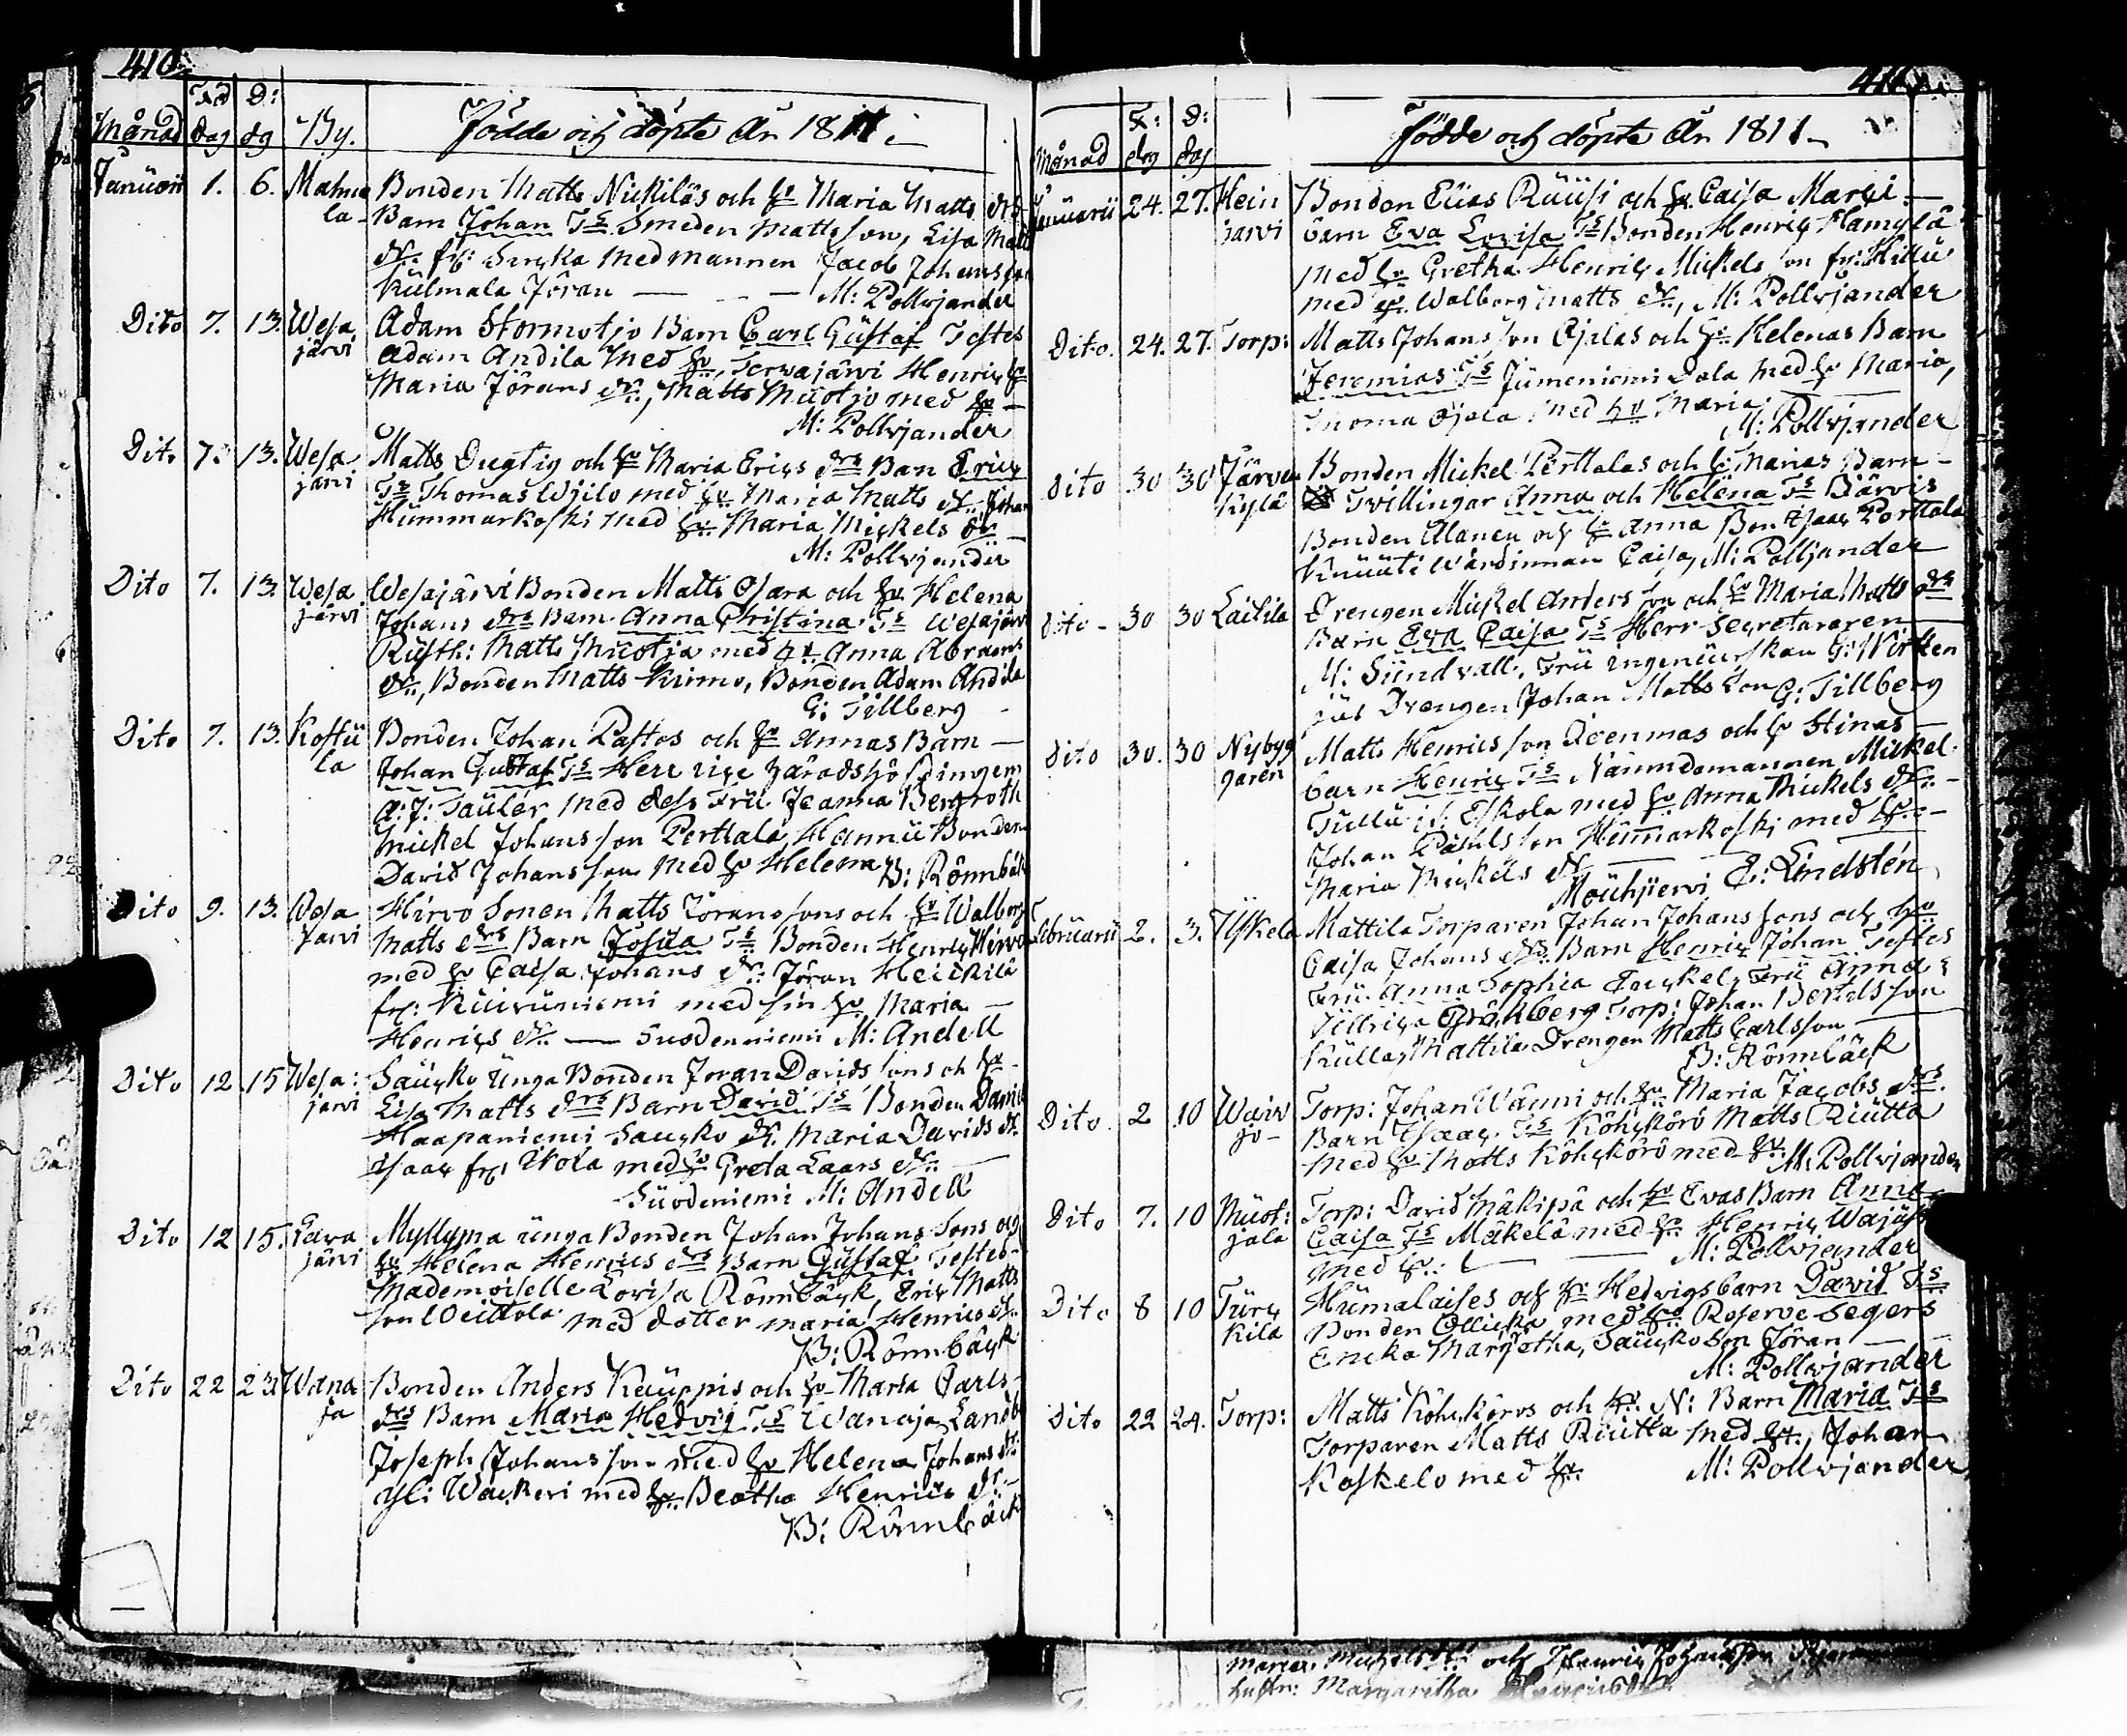 410.
Månad Fd dag D: dg By. Födde och döpte År 1811
Januarii 1. 6. Mahnala Bonden Matts Nickilös och hu Maria Matts dtrs
Barn Johan Ts Smeden Mattsson, Lisa Matts
dr. frl: med mannen Jacob Johansson
Kulmala Jöran — M: Pollvjander
Dito 7. 13. Wesajärvi Adam Stormotjo Barn Carl Gustaf Testes
Adam Andila med hu, Terwajärvi Henric hu
Maria Jörans dr., Matts Muotjo med hu —
M: Pollvjander
Dito 7. 13. Wesajärvi Matts Dugtig och hu Maria Erics dtrs Barn Eric
Ts Thomas med hu Maria Matts dr. Johan
Hummarkoski med hu Maria Mickels dr —
M: Pollvjander
Dito 7. 13. Wesajärvi Wesajärvi Bonden Matts Ojara och hu Helena
Johans dtrs Barn Anna Christina Ts Wesajärvi
Rusth: Matts Muotja med hu Anna Abrams
dr., Bonden Matts Krimo, Bonden Adam Andila
G: Tillberg
Dito 7. 13. Kostula Bonden Johan Pastos och hu Annas Barn —
Johan Gustaf Ts Herr vice häradshöfdingen
A: J: Taulér med dess Fru Jeanna Bergroth
Mickel Johansson Perttala, Hannu Bonden
David Johansson med hu Helena B: Rönnbäck
Dito 9. 13. Wesajärvi Hirvo Sonen Matts Jöranssons och hu Walborg
Matts dtrs Barn Josua Ts Bonden Henric Hirvo
med hu Caisa Johans dr: Jöran Heickilä
frl: Kuivuniemi med sin hu Maria —
Henrics dr. — Suodenniemi M: Andell
Dito 12 15 Wesajärvi Saucko unga Bonden Joran Davids sons och hu
Lisa Matts dtrs Barn David Ts Bonden David
Haapaniemi Saucko dr. Maria Davids dr.
Isaac frl med hu Greta Laars dr. —
Suodeniemi M: Andell
Dito 12 15. Lavajärvi Myllyma unga Bonden Johan Johans Sons och
hu Helena Henrics dtrs Barn Gustaf Testes
Mademoiselle Lovisa Rönnbäck, Eric Matts
son med dotter maria Henrics dr.
B: Rönnbäck
Dito 22 23 Wanaja Bonden Anders Kauppis och hu Maria Carls
dtrs Barn Maria Hedvig Ts Wanaja Landb
Joseph Johansson med hu Helena Johans dr.
Yli Wäckeri med hu Beatha Henrics dr. —
B: Rönnbäck
411.
Månad F: dag D: dag Födde och döpte År 1811
Januarii 24. 27. Heinjärvi Bonden Elias Ruusi och hu Caisa Marci —
barn Eva Lovisa Ts Bonden Henric Hamylä
med hu Gretha Henric Mickels son fr: Hillu
med hu Walborg Matts dr., M: Pollvjander
Dito. 24. 27. Torp: Matts Johansson Ojalas och hu Helenas Barn
Jeremias Ts Jumeniemi Dala med hu Maria,
Thoma Ojala med hu Maria —
M: Pollvjander
dito 30 30 Järvenkylä Bonden Mickel Perttalas och hu Marias Barn —
Tvillingar Anna och Helena Ts Järvis
Bonden Alanen och hu Anna Bon Isaac Perttala
Knuuti Wärdinnan Caisa, M: Pollvjander
dito — 30 30 Laitila Drengen Mickel Andersson och hu Maria Matts dtrs
Barn Eva Caisa Ts Herr Secreteraren
M: Sundvall, Fru ingenieurskan G: Wirtzen
jus Drengen Johan Mattsson G: Tillberg
dito 30. 30 Nybyggaren Matts Henricsson och hu Stinas —
barn Henric Ts Nämndemannen Mickel
Tullu i Eskola med hu Anna Mickels dr. —
Johan Påhlsson Hummarkoski med hu —
Maria Mickels dr —
Mouhijervi E: Lindstén
Februarii 2. 3. Yliskela Mattila Torparen Johan Johans Sons och hu
Caisa Johans dtrs. Barn Henric Johan Testes
Fru Anna Sophia Enckel, Fru Anna
Ullrica Gråhberg Torp: Johan Bertils son
Kulla, Mattila Drengen Matts Carlsson —
B: Rönnbäck
Dito. 2 10 Waivjo — Torp: Johan Wänni och hu Maria Jacobs dtrs
Barn Isaac Ts Köhckörö Matts Riutta
Med hu Matts Köhckörö med hu. M: Pollvjander
Dito 7. 10 Muotjala Torp: David Mäkipä och hu Evas Barn Anna
Caisa Ts Mäkelä med hu Henric
Med hu: — M: Pollvjander
Dito 8 10 Türckila Humalaises och hu Hedvigs barn David Ts
Bonden Ollicka med hu Reserve Segers
Encka Margetha, Saucko Son Jöran — —
M: Pollvjander
Dito 22 24. Torp: Matts Köhckörös och hu N: Barn Maria Ts
Torparen Matts Riutta med hu, Johan
Koskelo med hu. M: Pollvjander
Marcus Michelss och Henric Johansson
hustru: Margaretha